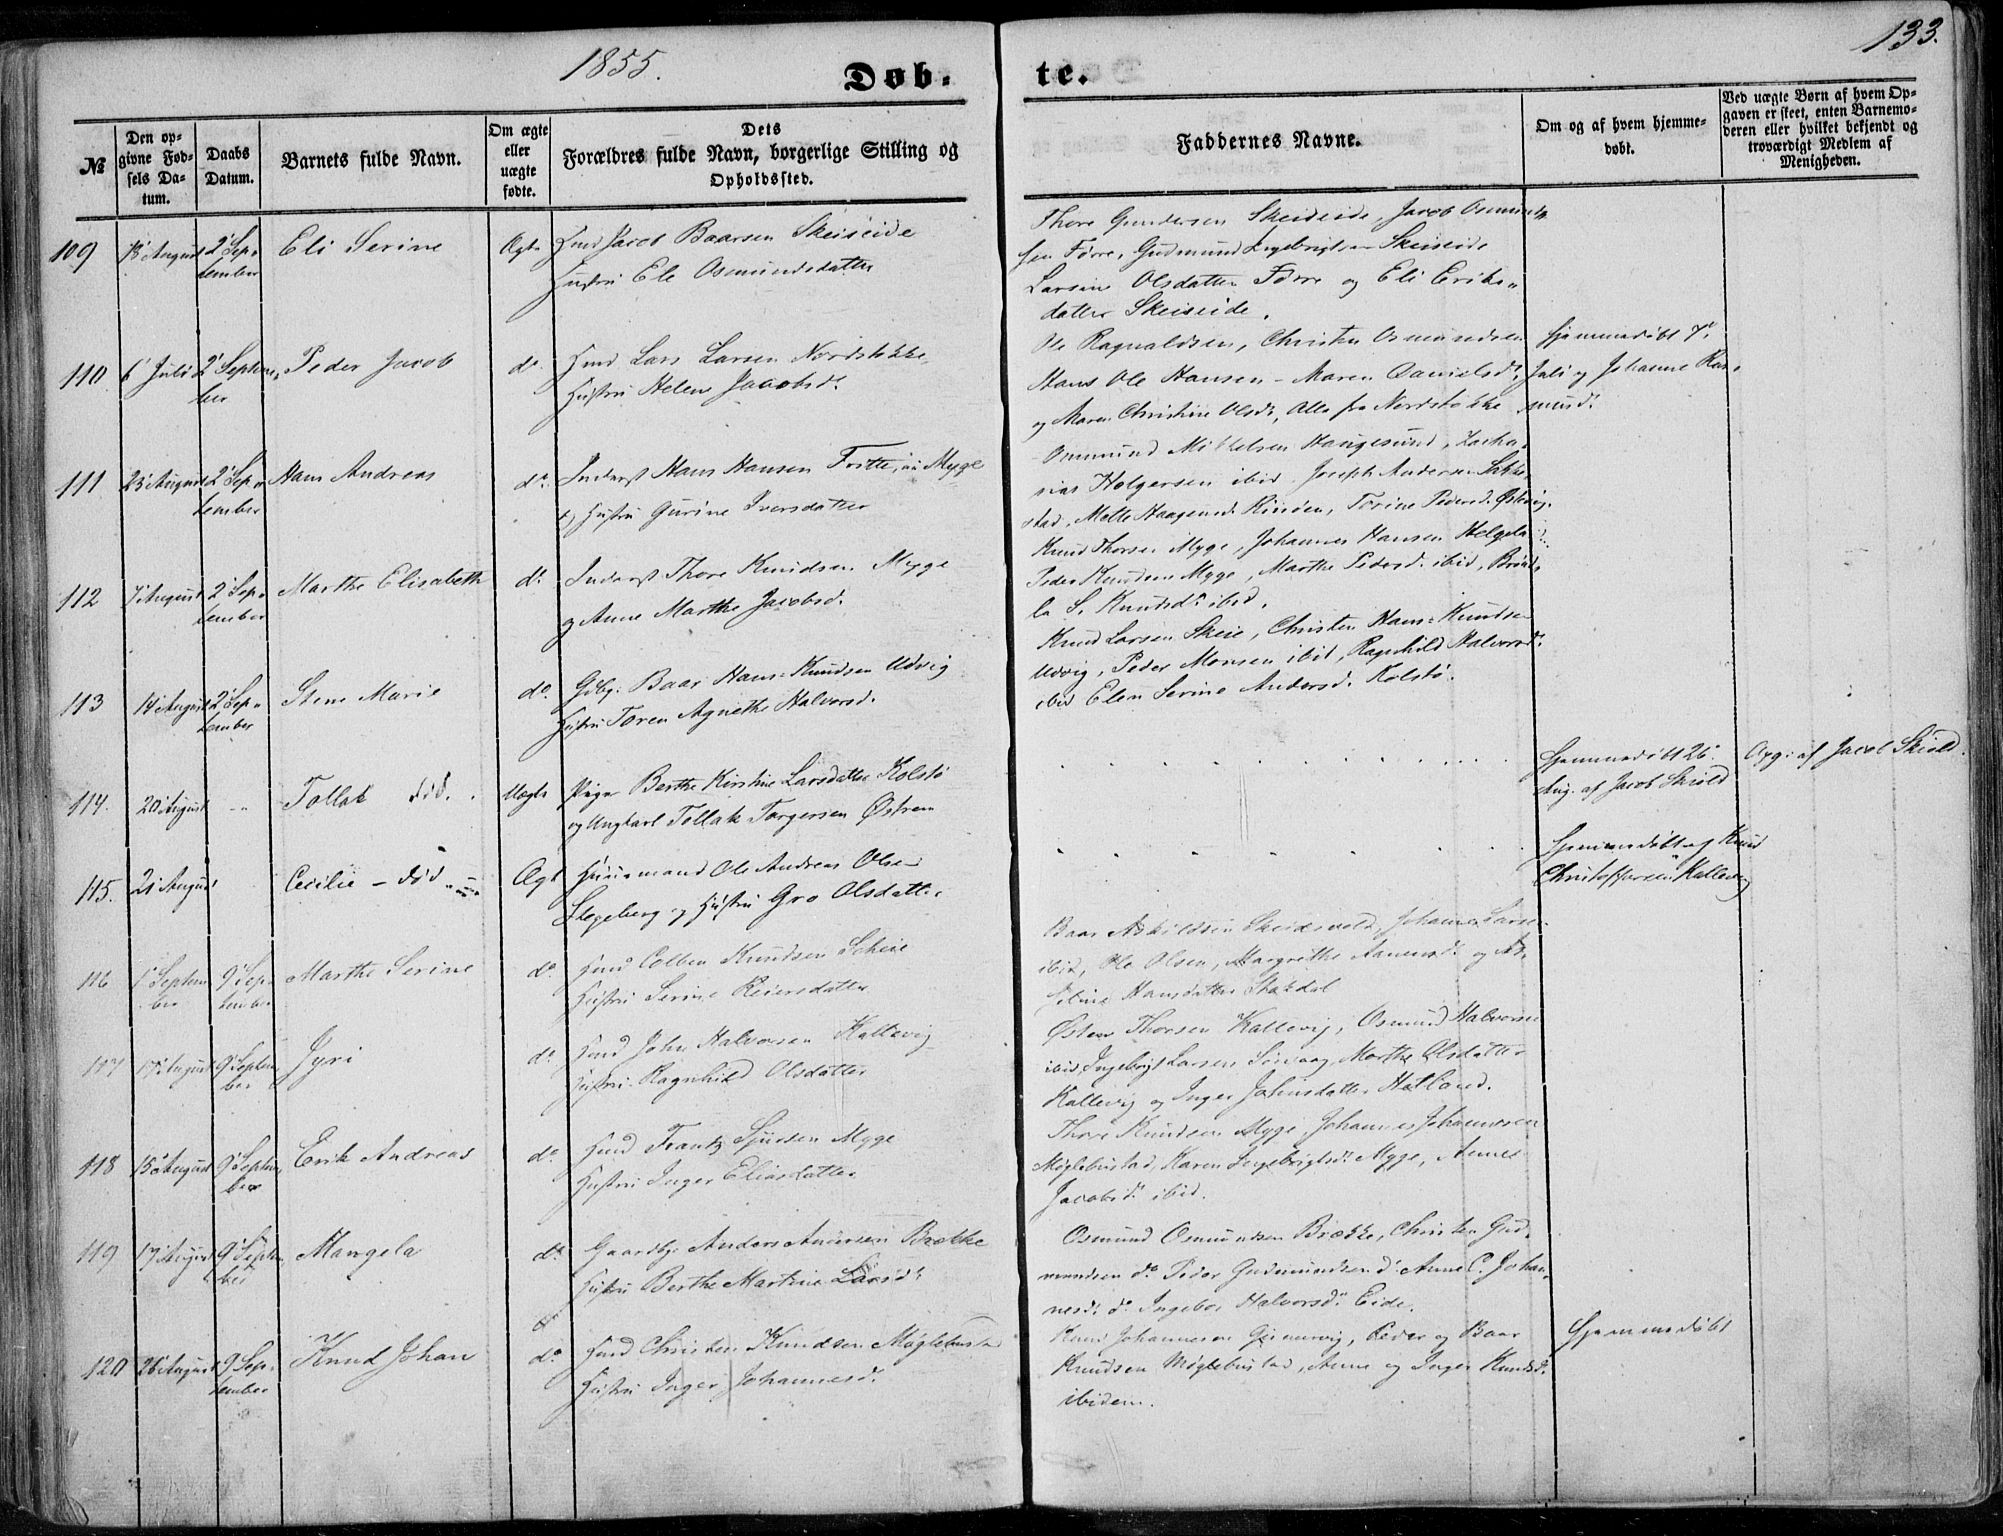 1855.
133.
Døb-
te.
№
Den op-
givne Fød-
sels Da-
tum.
Daabs
Datum.
Barnets fulde Navn.
Om ægte
eller
uægte
fødte.
Dets
Forældres fulde Navn, borgerlige Stilling og
Opholdssted.
Faddernes Navne.
Om og af hvem hjemme-
døbt.
Ved uægte Børn af hvem Op-
gaven er skeet, enten Barnemo-
deren eller hvilket bekjendt og
troværdigt Medlem af
Menigheden.
109
August 2' Sep-
tember
Eli Serine
Ægte
Jacob Baarsen Skeiseide
Hustru Ele Osmundsdatter
Thore Gundersen Skeiseide, Jacob Osmund-
sen Førre, Gudmund Ingebrigtsen Skeiseide
Larsine Olsdatter Førre og Eli Eriks-
datter Skeiseide.
110
6' Juli 2' Septem-
ber
Peder Jacob
do
Lars Larsen Nordstokke
Hustru Helene Jacobsd.
Ole Ragnaldsen, Christen Osmundsen
Hans Ole Hansen - Maren Danielsd.
og Maren Christine Olsd. Alle fra Nordstokke
Hjemmedøbt 7'
Juli af Johanne Ras-
musd.
111
23' August 2' Sep-
tember
Hans Andreas
do
Inderst Hans Hansen Myge
og Hustru Gurine Iversdatter
Ommund Mikkelsen Haugesund, Zacha-
rias Holgersen ibid. Joseph Andersen
stad, Mette Haagensd. Rinden, Torine Pedersd. Østevig.
112
7' August 2' Sep-
tember
Marthe Elisabeth
do
Inderst Thore Knudsen Myge
og Anne Marthe Jacobsd.
Knud Thorsen Myge, Johannes Hansen Helgeland
Peder Knudsen Myge, Marthe Pedersd. ibid,
la S. Knudsd. ibid.
113
14' August 2' Sep-
tember
Stine Marie
do
Gdbgr. Baar Hans Knudsen Udvig
Hustru Toren Agnethe Halvorsd.
Knud Larsen Skeie, Christen Hans Knudsen
Udvig, Peder Monsen ibid, Ragnhild Halvorsd.
ibid Elen Serine Andersd. Kolstø.
114.
20' August
Tollak død.
Uægte
Pige Berthe Kirstine Larsdatter Kolstø
og Ungkarl Tollak Torgersen Østrem
Hjemmedøbt 26'
Aug. af Jacob Skiold
Opg: af Jacob Skiold.
115.
21 August
Cecilie - død
Ægt
Huusmand Ole Andreas Olsen
Stegeberg og Hustru Gro Olsdatter
Hjemmedøbt af Knud
Christoffersen Kallevig
116
1' Septem-
ber
9' Sep-
tember
Marthe Serine
do
Colben Knudsen Scheie
Hustru Serine Reiersdatter
Baar Askildsen Skeidsvold, Johannes Larsen
ibid, Ole Olsen, Margrethe og
Hansdatter Stakdal
117
17' August 9' Septem-
ber
Jyri
do
John Halvorsen Kallevig
Hustru Ragnhild Olsdatter
Østen Thorsen Kallevig, Osmund Halvorsen
ibid, Ingebrigt Larsen Marthe Olsdatter
Kallevig og Inger Johnsdatter Hetland.
118
15' August 9' Septem-
ber
Erik Andreas
do
Frantz Myge
Hustru Inger Eliasdatter
Thore Knudsen Myge, Johannes Johannesen
Møglebustad, Karen Ingebrigtsd. Myge, Anne
Jacobsd. ibid.
119
17' August 9' Septem-
ber
Mangela
do
Gaardbr. Anders Andersen Brekke
Hustru Berthe Martine Larsd.
Osmund Osmundsen Brække, Christen Gud-
mundsen do. Peder Gudmundsen d. Anne C. Johan-
nesd. do Ingebor Halvorsd. Eide.
120
26' August 9' Sep-
tember
Knud Johan
do
Christen Knudsen Møglebust
Hustru Inger Johannesd.
Knud Johannesen Peder og Baar
Knudsen Møglebustad, Anne og Inger Knudsd.
ibidem.
Hjemmedøbt